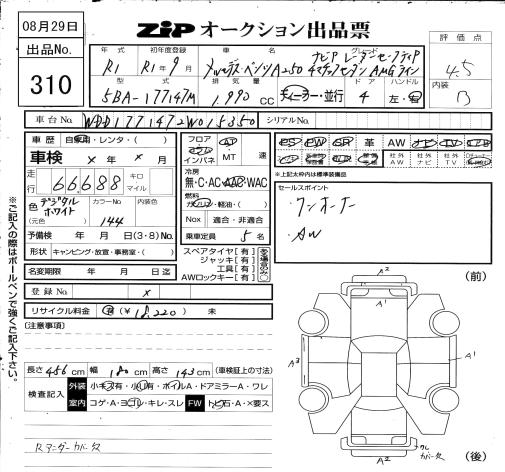 08月29日
出品No.
310
ZiP オークション出品票
評価点
4.5
内装
B
年式 初年度登録 車名 グレード
R1 R1年9月 メルセデス・ベンツA250 ナビP レーダーセーフティP
4マチックセダン AMGライン
型式 排気量 ドア ハンドル
5BA-177147M 1,990 CC ディーラー・並行 4 左・右
車台No. WDD1771472W015350 シリアルNo.
車歴 自家用・レンタ・( )
車検 × 年 × 月
走行 66,688 キロ マイル
色 デジタルホワイト カラーNo. 144
(元色)
予備検 年 月 日(3・8)No.
形状 キャンピング・放宣・事務室・( )
名変期限 年 月 日迄
シフト
フロア コラム インパネ AT MT 速
冷房
無・C・AC・AAC・WAC
燃料
ガソリン・軽油・( )
Nox 適合・非適合
乗車定員 5 名
スペアタイヤ【有】
ジャッキ【有】
工具【有】
AWロックキー【有】
PS PW SR 革 AW ナビ TV
社外AW 社外ナビ 社外TV
※上記太枠内は標準装備品
セールスポイント
・ワンオーナー
・AW
登録No. ×
リサイクル料金 有(¥18,220) 未
(注意事項)
※ご記入の際はボールペンで強くご記入下さい。
長さ 456 cm 幅 180 cm 高さ 143 cm (車検証上の寸法)
検査記入 外装 小キズ有・小凹有・ホイルA・ドアミラーA・ワレ
室内 コゲ・A・ヨゴレ・キレ・スレ FW トビ石・A・×要ス
Rアンダーカバーダメ
(前)
A2
A1
A3
A1
A2
ワレ
カバーダメ
(後)